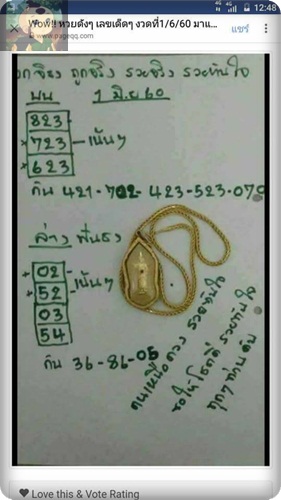 12:48
Wow!! หวยดังๆ เลขเด็ดๆ งวดที่1/6/60 มาแ...
www.pageqq.com
แชร์
ถูกจริง รวยจริง รวยทันใจ
บน 1 มิ.ย 60
823
723 เน้นๆ
623
กัน 421-702-423-523-070
ล่าง ฟันธง
02
52 เน้นๆ
03
54
กัน 36-86-05
คนเหนือดวง รวยทันใจ
ขอให้โชคดี รวยทันใจ
ทุกๆท่านคับ
Love this & Vote Rating